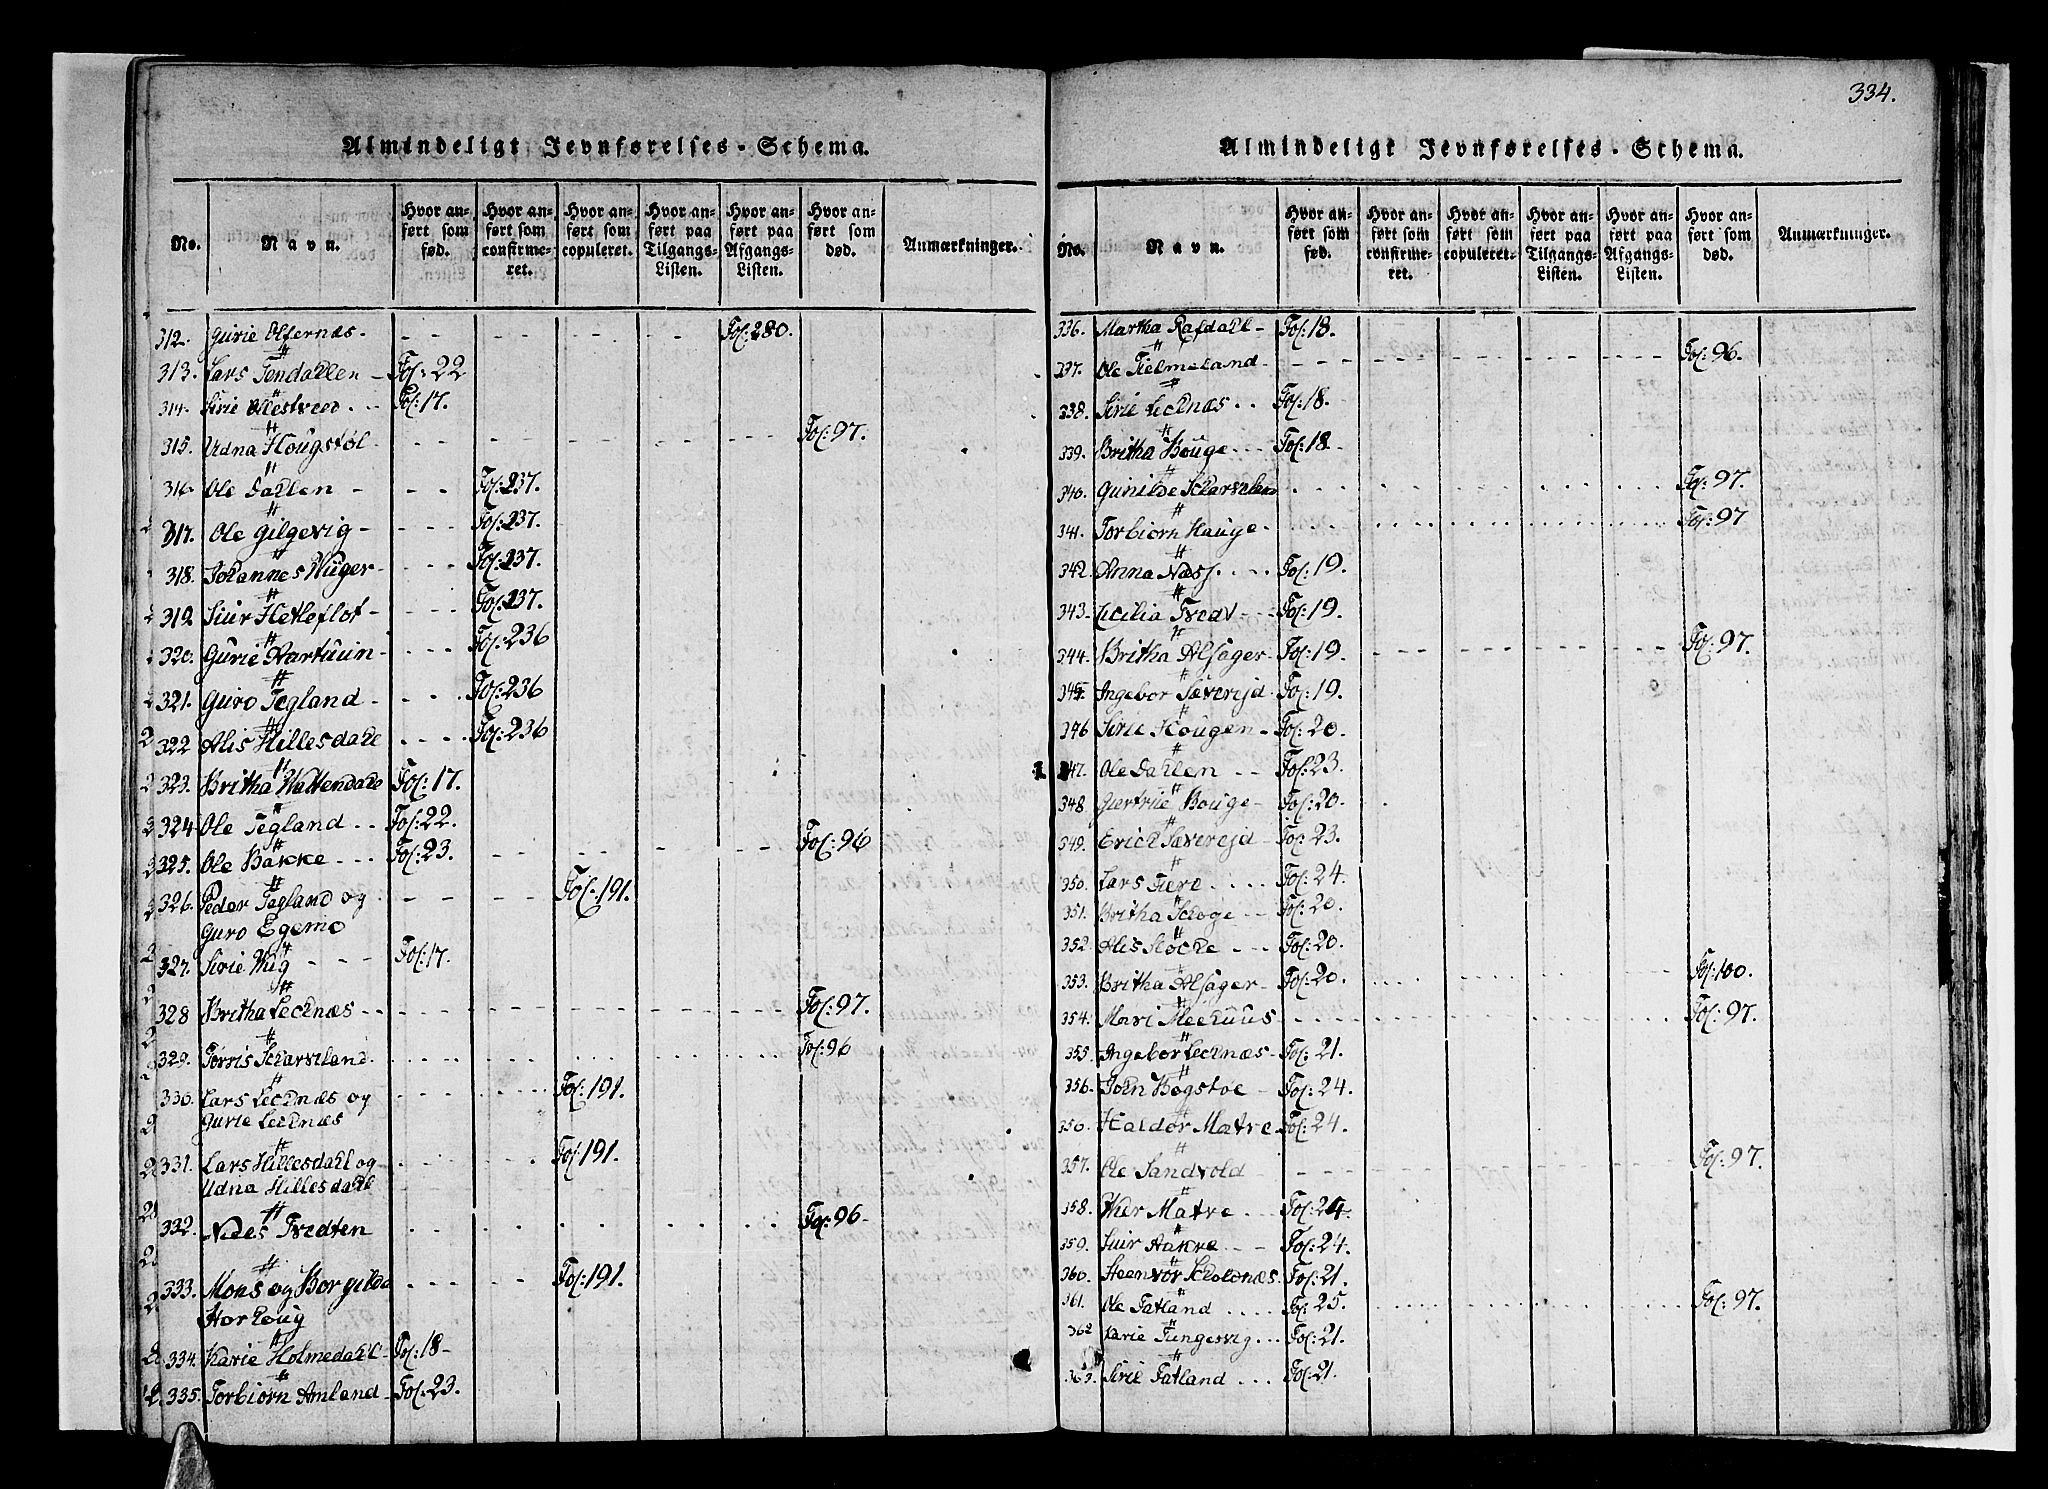 334.
Almindeligt Jevnførelses-Schema.
No. Navn. Hvor anført som fød. Hvor anført som confirmeret. Hvor anført som copuleret. Hvor anført paa Tilgangs-Listen. Hvor anført paa Afgangs-Listen. Hvor anført som død. Anmærkninger.
312. Gurie Olfernæs - Fol: 280.
313. Lars Tendahlen - Fol: 22
314. Sirie Ollestved Fol: 17.
315. Udna Hougstøl - Fol: 97.
316. Ole Dahlen - Fol: 237.
317. Ole Gilgevig - Fol: 237.
318. Johannes Wuger - Fol: 237.
319 Siur Hetleflot - Fol: 237.
320. Gurie Aartuun - Fol: 236
321. Guro Tegland - Fol: 236
322 Alis Hillesdahl Fol: 236
323. Britha Wattendahl Fol: 17.
324 Ole Tegland Fol: 22.
325. Ole Bakke Fol: 23. Fol: 96
326. Peder Tegland og Fol: 191.
Guro Egemo
327. Sirie Wiig Fol: 17.
328 Britha Lechnæs Fol: 97.
329. Torris Scharveland Fol: 96
330. Lars Lechnæs og Fol: 191.
Gurie Lechnæs
331. Lars Hillesdahl og Fol: 191.
Udna Hillesdahl
332. Niels Tredten Fol: 96
333. Mons og Borgilda Fol: 191.
Horhoug
334. Karie Holmedahl Fol: 18
335. Torbiørn Amland Fol: 23.
Almindeligt Jevnførelses-Schema.
No. Navn. Hvor anført som fød. Hvor anført som confirmeret. Hvor anført som copuleret. Hvor anført paa Tilgangs-Listen. Hvor anført paa Afgangs-Listen. Hvor anført som død. Anmærkninger.
336. Martha Rafdahl Fol: 18.
337. Ole Tielmeland Fol: 96.
338. Sirie Lechnæs Fol: 18.
339. Britha Bouge Fol: 18
340. Gunilde Fol: 97.
341. Torbiørn Hauge Fol: 97
342. Anna Næss Fol: 19.
343. Cecilia Tredt Fol: 19.
344. Britha Alsager Fol: 19. Fol: 97.
345. Ingebor Sævereid Fol: 19.
346 Sirie Hougen Fol: 20.
347. Ole Dahlen Fol: 23.
348. Giertrue Bouge Fol: 20.
349. Erich Sævereid Fol: 23.
350. Lars Tiere Fol: 24.
351. Britha Schoge Fol: 20.
352. Alis Støhle Fol: 20.
353. Britha Alsager Fol: 20. Fol: 100.
354. Mari Meehuus Fol: 97.
355. Ingebor Lechnæs Fol: 21.
356. John Bogstoe Fol: 24.
350. Haldor Matre Fol: 24.
357. Ole Sandvold Fol: 97.
358. Ther Matre Fol: 24.
359. Siur Aakre Fol: 24.
360. Steenvør Scholdnæs Fol: 21.
361. Ole Fatland Fol: 25. Fol: 97.
362 Karie Tungesvig Fol: 21.
363. Sirie Fatland Fol: 21.